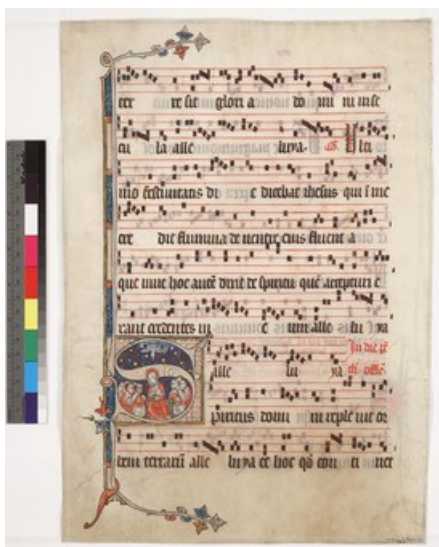 ter re sit glori a do mi ni in se
cu la alle luya. co. Ulti
mo festiuitatis di e dicebat ihesus qui i me
cre dit flumina de uentre eius fluent a
que uiue hoc autē dixit de spiritu quē accepturi e
rant credentes in e um alle lu ya
In die pē
alle lu ya
Spiritus domi ni reple uit or
bem terrarū alle luya et hoc qđ con ti net